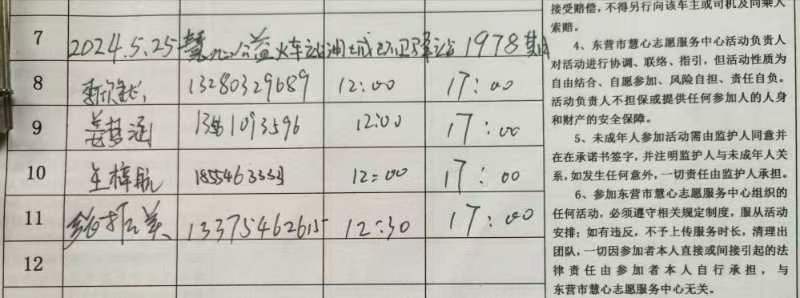 7 2024.5.25 慧心公益火车站油城环卫驿站 1978期
8 13280329689 12:00 17:00
9 姜梦涵 13561093596 12:00 17:00
10 王梓航 17:00
11 13375462615 12:30 17:00
12
接受赔偿，不得另行向该车主或司机及同乘人
索赔。
4、东营市慧心志愿服务中心活动负责人
对活动进行协调、联络、指引，但活动性质为
自由结合、自愿参加、风险自担、责任自负。
活动负责人不担保或提供任何参加人的人身
和财产的安全保障。
5、未成年人参加活动需由监护人同意并
在在承诺书签字，并注明监护人与未成年人关
系，如发生任何意外，一切责任由监护人承担。
6、参加东营市慧心志愿服务中心组织的
任何活动，必须遵守相关规定制度，服从活动
安排；如有违反，不予上传服务时长，清理出
团队，一切因参加者本人直接或间接引起的法
律责任由参加者本人自行承担，与
东营市慧心志愿服务中心无关。